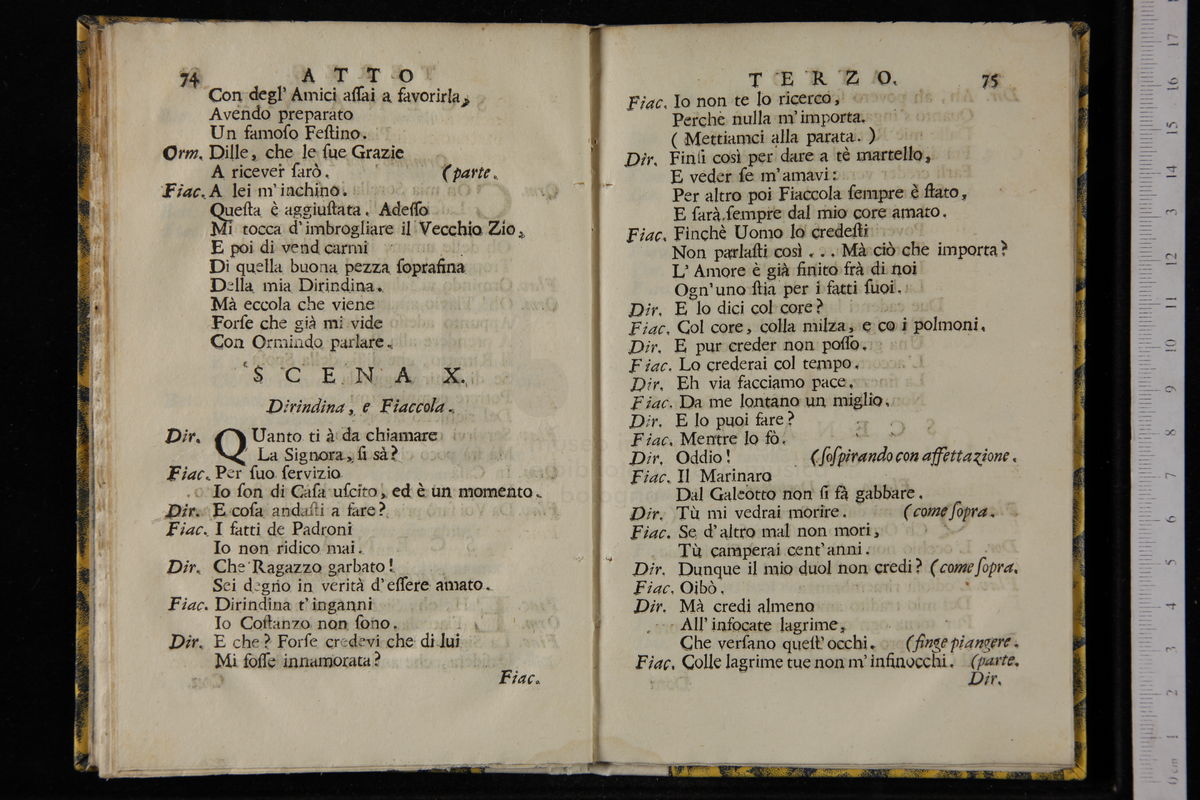 74 ATTO
Con degl' Amici aſſai a favorirla,
Avendo preparato
Un famoſo Feſtino.
Orm. Dille, che le ſue Grazie
A ricever ſarò. (parte.
Fiac. A lei m'inchino.
Queſta è aggiuſtata. Adeſſo
Mi tocca d'imbrogliare il Vecchio Zio,
E poi di vend carmi
Di quella buona pezza ſopraſina
Della mia Dirindina.
Mà eccola che viene
Forſe che già mi vide
Con Ormindo parlare.
SCENA X.
Dirindina, e Fiaccola.
Dir. QUanto ti à da chiamare
La Signora, ſi sà?
Fiac. Per ſuo ſervizio
Io ſon di Caſa uſcito, ed è un momento.
Dir. E coſa andaſti a fare?
Fiac. I fatti de Padroni
Io non ridico mai.
Dir. Che Ragazzo garbato!
Sei degno in verità d'eſſere amato.
Fiac. Dirindina t'inganni
Io Coſtanzo non ſono.
Dir. E che? Forſe credevi che di lui
Mi foſſe innamorata?
Fiac.
TERZO. 75
Fiac. Io non te lo ricerco,
Perchè nulla m'importa.
( Mettiamci alla parata. )
Dir. Finſi così per dare a tè martello,
E veder ſe m'amavi:
Per altro poi Fiaccola ſempre è ſtato,
E ſarà ſempre dal mio core amato.
Fiac. Finchè Uomo lo credeſti
Non parlaſti così . . . Mà ciò che importa?
L' Amore è già finito frà di noi
Ogn'uno ſtia per i fatti ſuoi.
Dir. E lo dici col core?
Fiac. Col core, colla milza, e co i polmoni.
Dir. E pur creder non poſſo.
Fiac. Lo crederai col tempo.
Dir. Eh via facciamo pace.
Fiac. Da me lontano un miglio.
Dir. E lo puoi fare?
Fiac. Mentre lo fò.
Dir. Oddio! (ſoſpirando con affettazione.
Fiac. Il Marinaro
Dal Galeotto non ſi fà gabbare.
Dir. Tù mi vedrai morire. (come ſopra.
Fiac. Se d'altro mal non mori,
Tù camperai cent'anni.
Dir. Dunque il mio duol non credi? (come ſopra.
Fiac. Oibò.
Dir. Mà credi almeno
All' infocate lagrime,
Che verſano queſt' occhi. (finge piangere.
Fiac. Colle lagrime tue non m'infinocchi. (parte.
Dir.